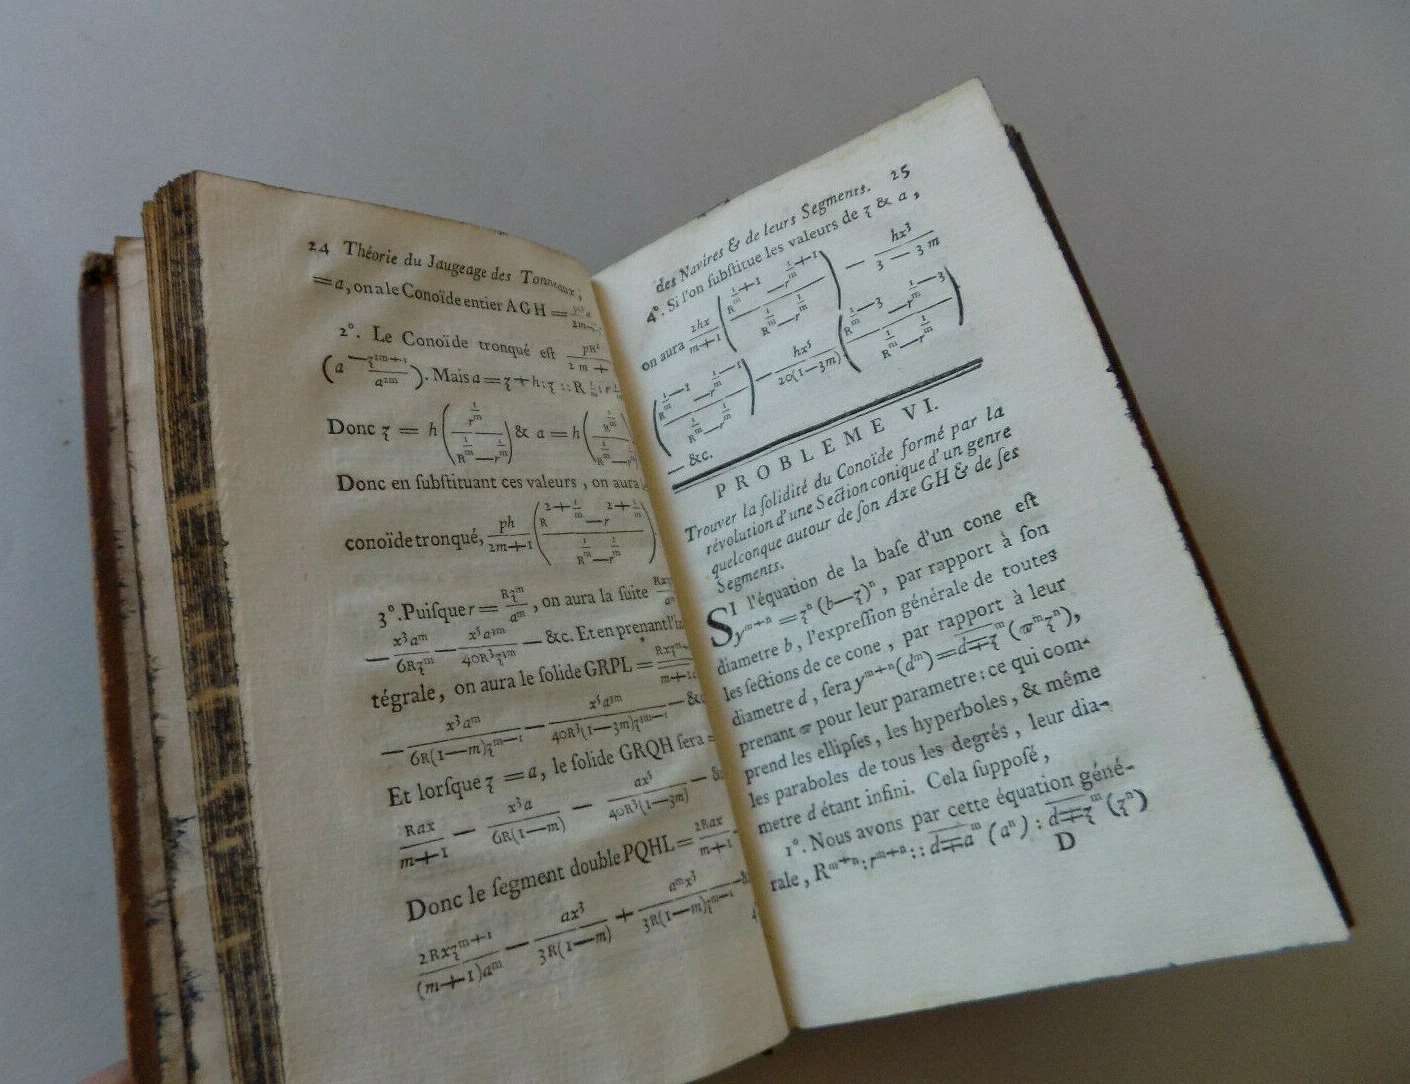 24 Théorie du Jaugeage des Tonneaux,
=a, on a le Conoïde entier AGH =
2°. Le Conoïde tronqué eſt pR²/2m+
(a − ʒ^{2m+1}/a^{2m}). Mais a = ʒ + h : ʒ :: R^{1/m} : r^{1/m}
Donc ʒ = h (r^{1/m} / R^{1/m}—r^{1/m}) & a = h (R^{1/m} / R^{1/m}—r^{1/m}
Donc en ſubſtituant ces valeurs, on aura
conoïde tronqué, ph/2m+1 (R^{2+1/m}—r^{2+1/m} / R^{1/m}—r^{1/m})
3°. Puiſque r = Rʒ^m/a^m, on aura la ſuite
— x³a^m/6Rʒ^m — x⁵a^{3m}/40R³ʒ^{3m} — &c. Et en prenant l'in
tégrale, on aura le ſolide GRPL = Rxʒ^{m+1}/m+1
— x³a^m/6R(1—m)ʒ^{m—1} — x⁵a^{3m}/40R³(1—3m)ʒ^{3m—1} — &c
Et lorſque ʒ = a, le ſolide GRQH ſera =
Rax/m+1 — x³a/6R(1—m) — ax⁵/40R³(1—3m) — &
Donc le ſegment double PQHL = 2Rax/m+1
2Rxʒ^{m+1}/(m+1)a^m — ax³/3R(1—m) + a^mx³/3R(1—m)ʒ^{m—1}
des Navires & de leurs Segments. 25
4°. Si l'on ſubſtitue les valeurs de ʒ & a,
on aura 2hx/m+1 (R^{1/m+1}—r^{1/m+1} / R^{1/m}—r^{1/m}) — hx³/3—3m
(R^{1/m—1}—r^{1/m—1} / R^{1/m}—r^{1/m}) — hx⁵/20(1—3m) (R^{1/m—3}—r^{1/m—3} / R^{1/m}—r^{1/m})
— &c.
PROBLEME VI.
Trouver la ſolidité du Conoïde formé par la
révolution d'une Section conique d'un genre
quelconque autour de ſon Axe GH & de ſes
Segments.
SI l'équation de la baſe d'un cone eſt
y^{m+n} = ʒ^n (b—ʒ)^n, par rapport à ſon
diametre b, l'expreſſion générale de toutes
les ſections de ce cone, par rapport à leur
diametre d, ſera y^{m+n} (d^m) = d∓ʒ^m (ϖ^m ʒ^n),
prenant ϖ pour leur parametre : ce qui com-
prend les ellipſes, les hyperboles, & même
les paraboles de tous les degrés, leur dia-
metre d étant infini. Cela ſuppoſé,
1°. Nous avons par cette équation géné-
rale, R^{m+n} : r^{m+n} :: d∓a^m (a^n) : d∓ʒ^m (ʒ^n)
D